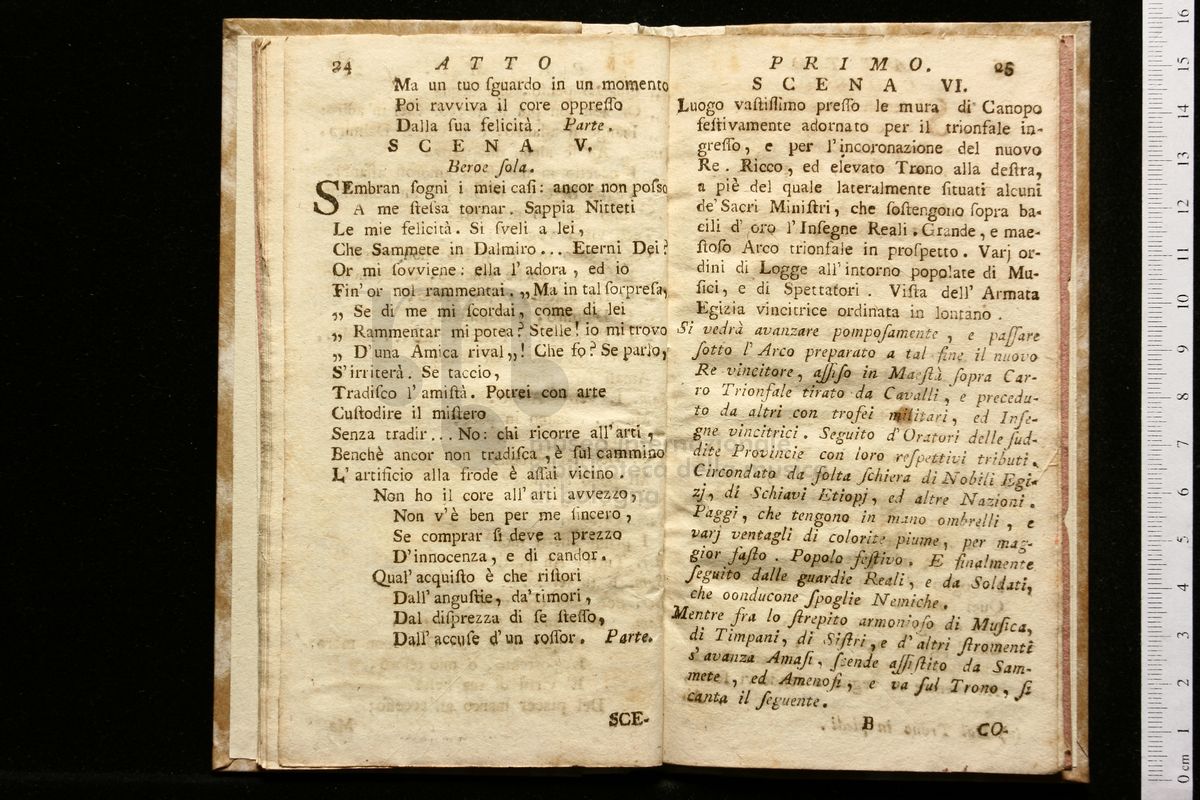 24 ATTO
Ma un tuo ſguardo in un momento
Poi ravviva il core oppreſſo
Dalla ſua felicità. Parte.
SCENA V.
Beroe ſola.
SEmbran ſogni i miei caſi: ancor non poſso
A me ſteſsa tornar. Sappia Nitteti
Le mie felicità. Si ſveli a lei,
Che Sammete in Dalmiro... Eterni Dei?
Or mi ſovviene: ella l'adora, ed io
Fin'or nol rammentai. „Ma in tal ſorpreſa,
„ Se di me mi ſcordai, come di lei
„ Rammentar mi potea? Stelle! io mi trovo
„ D'una Amica rival„! Che fo? Se parlo,
S'irriterà. Se taccio,
Tradiſco l'amiſtà. Potrei con arte
Cuſtodire il miſtero
Senza tradir... No: chi ricorre all'arti,
Benchè ancor non tradiſca, è ſul cammino
L'artificio alla frode è aſſai vicino.
Non ho il core all'arti avvezzo,
Non v'è ben per me ſincero,
Se comprar ſi deve a prezzo
D'innocenza, e di candor.
Qual'acquiſto è che riſtori
Dall'anguſtie, da'timori,
Dal diſprezza di ſe ſteſſo,
Dall'accuſe d'un roſſor. Parte.
SCE-
PRIMO. 25
SCENA VI.
Luogo vaſtiſſimo preſſo le mura di Canopo
feſtivamente adornato per il trionfale in-
greſſo, e per l'incoronazione del nuovo
Re. Ricco, ed elevato Trono alla deſtra,
a piè del quale lateralmente ſituati alcuni
de'Sacri Miniſtri, che ſoſtengono ſopra ba-
cili d'oro l'Inſegne Reali. Grande, e mae-
ſtoſo Arco trionfale in proſpetto. Varj or-
dini di Logge all'intorno popolate di Mu-
ſici, e di Spettatori. Viſta dell'Armata
Egizia vincitrice ordinata in lontano.
Si vedrà avanzare pompoſamente, e paſſare
ſotto l'Arco preparato a tal fine il nuovo
Re vincitore, aſſiſo in Maeſtà ſopra Car-
ro Trionfale tirato da Cavalli, e precedu-
to da altri con trofei militari, ed Inſe-
gne vincitrici. Seguito d'Oratori delle ſud-
dite Provincie con loro reſpettivi tributi.
Circondato da folta ſchiera di Nobili Egi-
zj, di Schiavi Etiopj, ed altre Nazioni.
Paggi, che tengono in mano ombrelli, e
varj ventagli di colorite piume, per mag-
gior faſto. Popolo feſtivo. E finalmente
ſeguito dalle guardie Reali, e da Soldati,
che oonducone ſpoglie Nemiche.
Mentre fra lo ſtrepito armonioſo di Muſica,
di Timpani, di Siſtri, e d'altri ſtromenti
s'avanza Amaſi, ſcende aſſiſtito da Sam-
mete, ed Amenoſi, e va ſul Trono, ſi
canta il ſeguente.
B CO-
0 cm 1 2 3 4 5 6 7 8 9 10 11 12 13 14 15 16